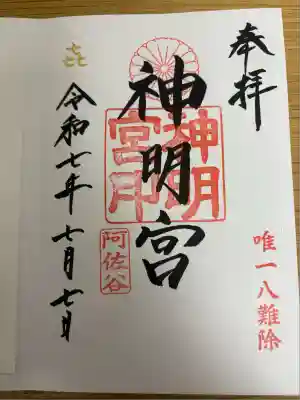 奉拝
唯一八難除
神明宮
神明宮印
阿佐谷
令和七年七月七日
㐂